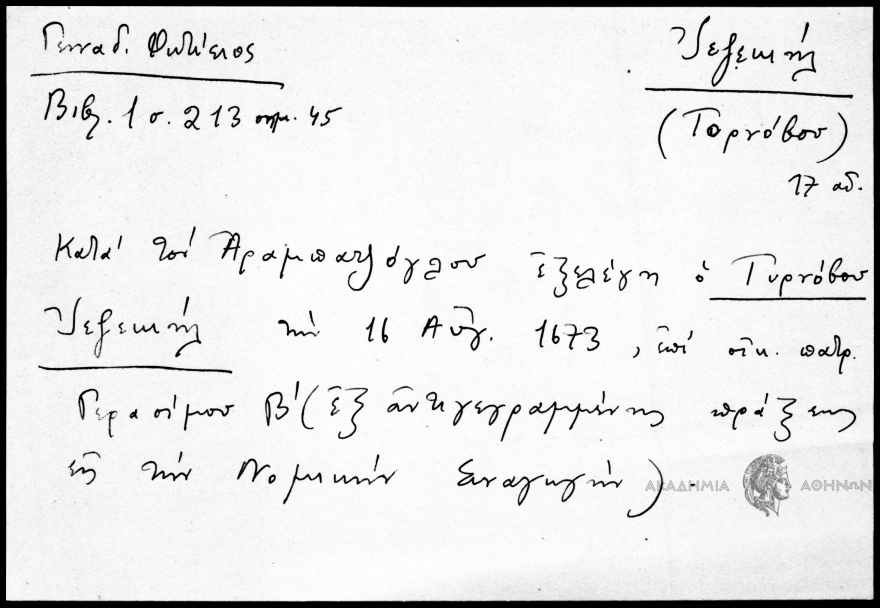 Γενναδ. Φωτίειος
Βιβλ. 1 σ. 213 σημ. 45
Ἰεζεκιήλ
(Τορνόβου)
17 αἰ.
Κατά τόν Ἀραμπατζόγλου ἐξελέγη ὁ Τυρνόβου
Ἰεζεκιήλ τήν 16 Αὐγ. 1673, ἐπί οἰκ. πατρ.
Γερασίμου Β΄ (ἐξ ἀντιγεγραμμένης πράξεως
εἰς τήν Νομικήν Συναγωγήν).
ΑΚΑΔΗΜΙΑ ΑΘΗΝΩΝ